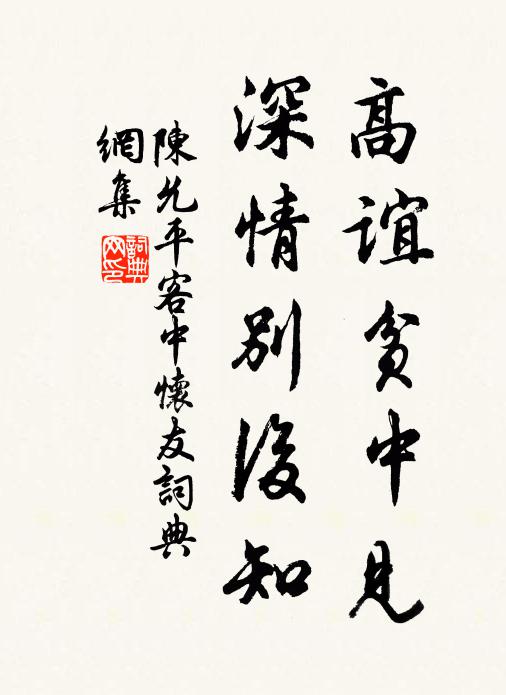 高誼貧中見
深情別後知
陳允平客中懷友詞典
網集
詞典
网印